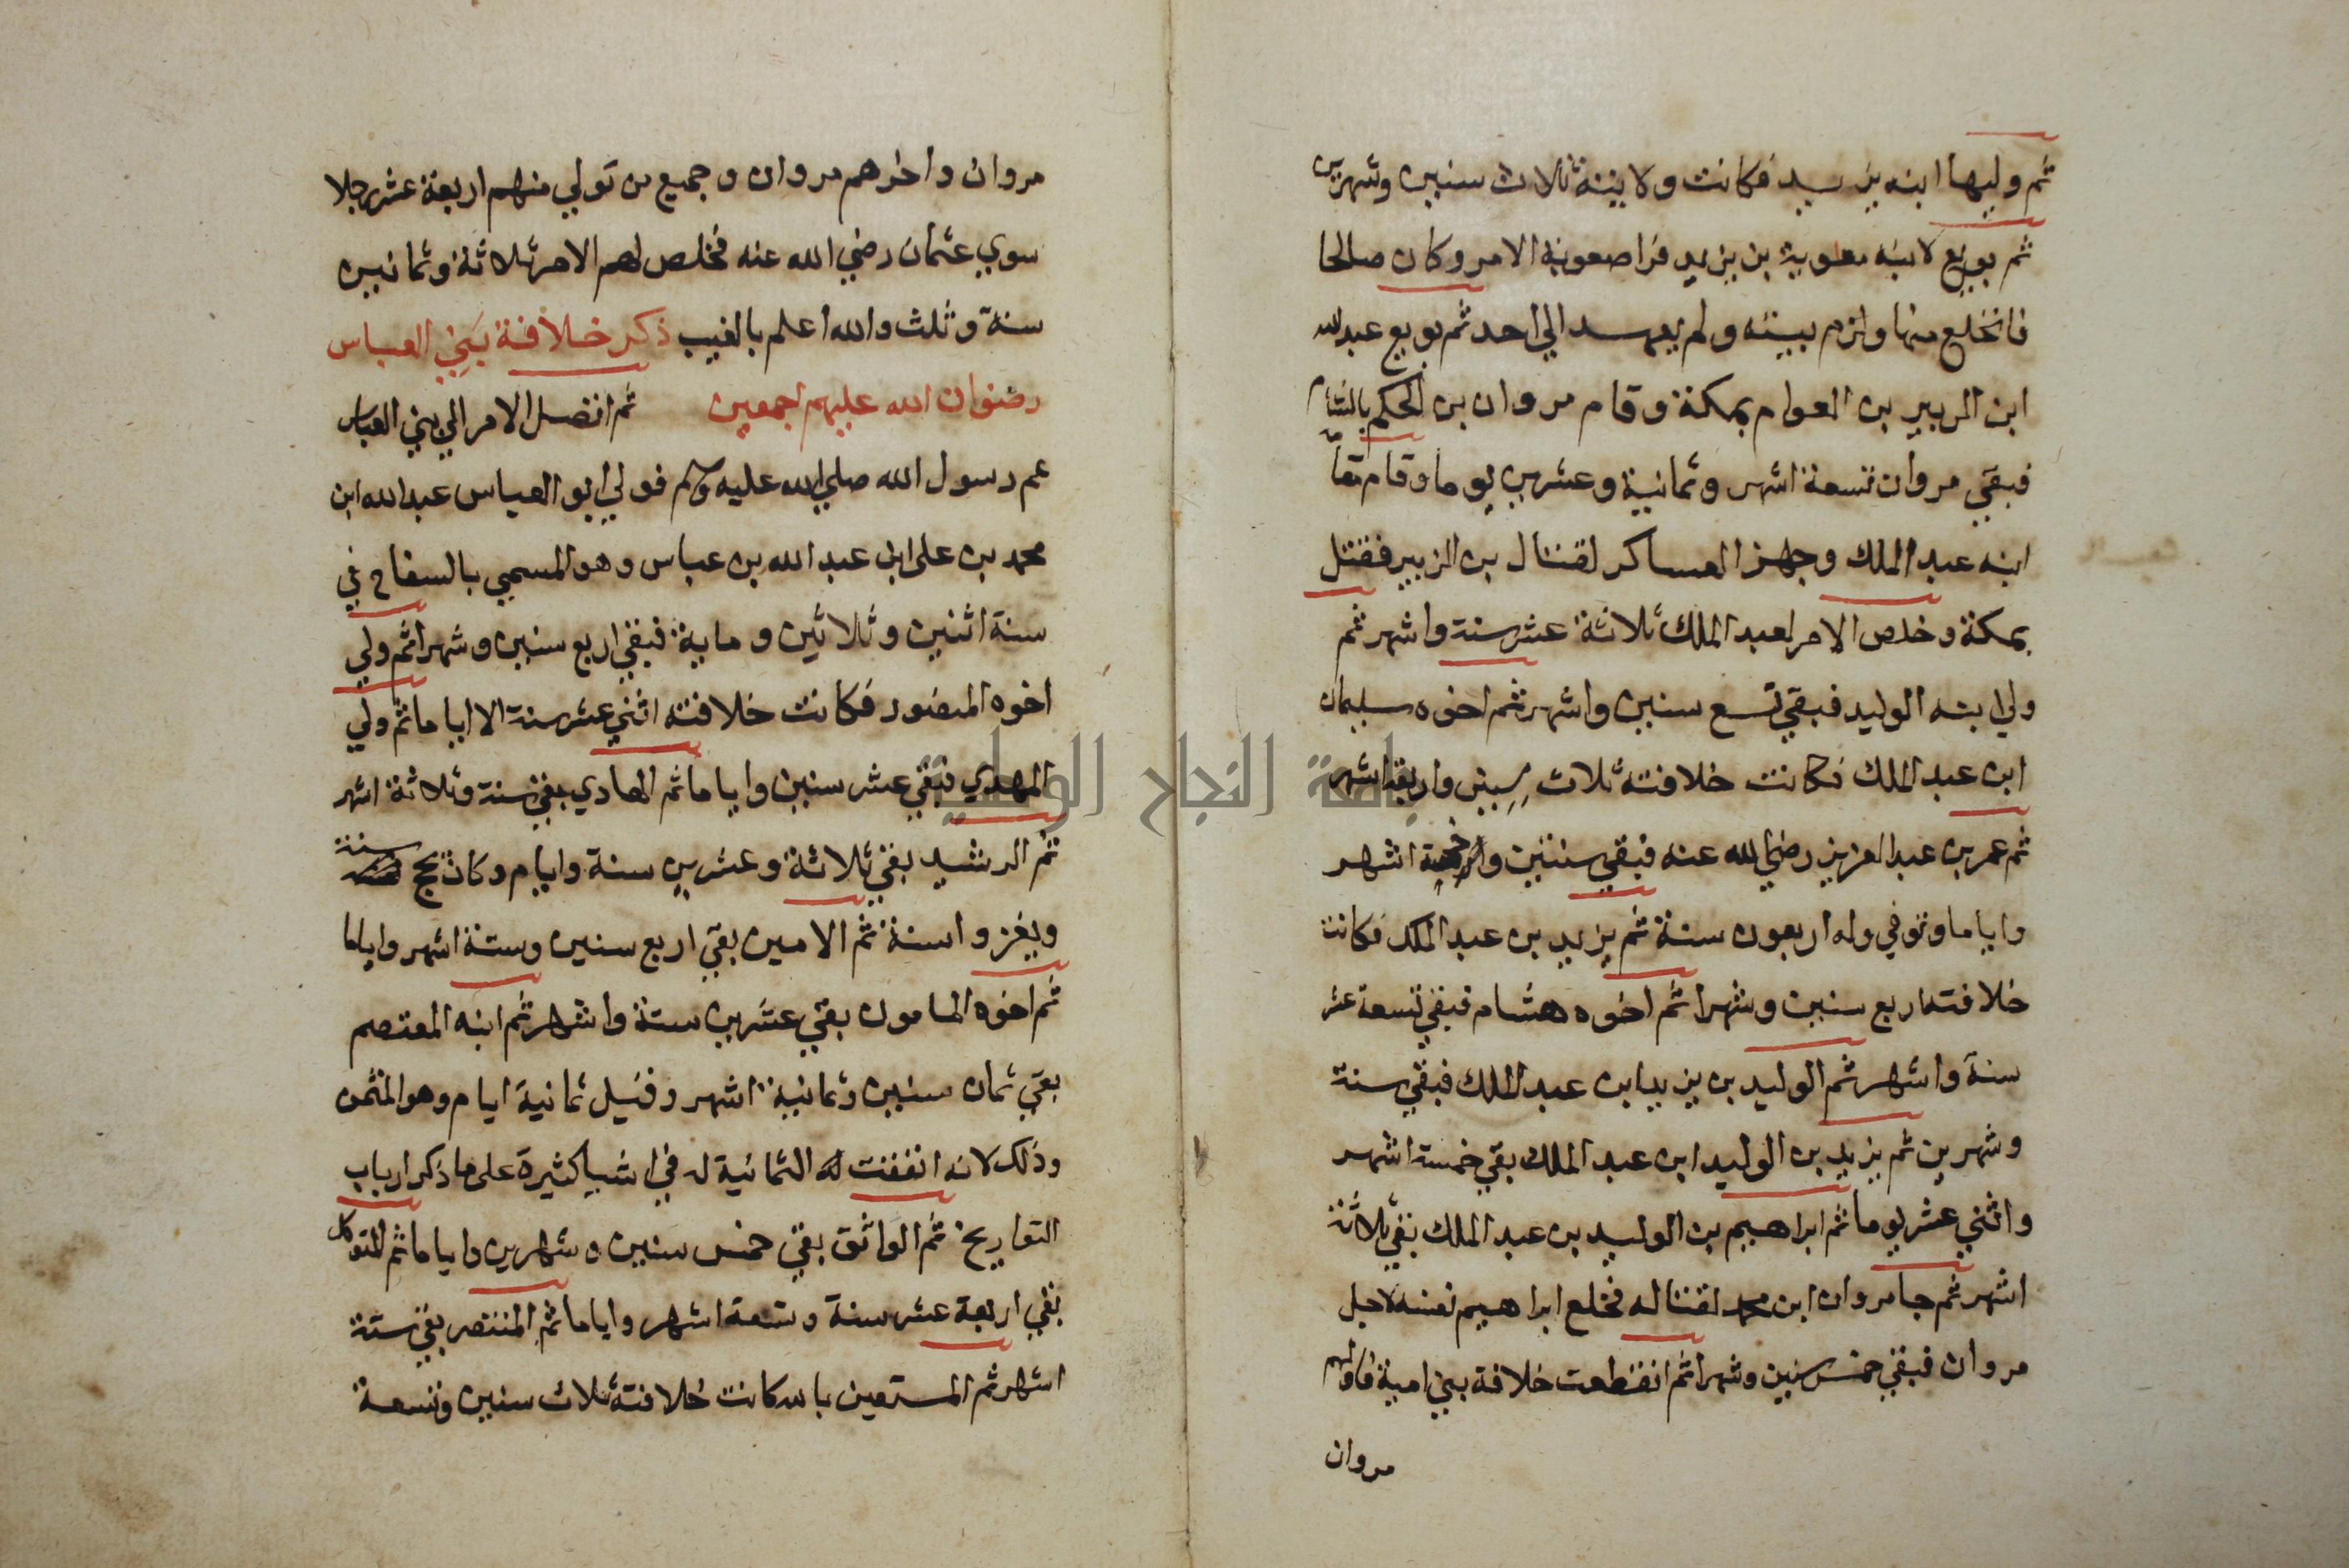 ثم وليها ابنه يزيد فكانت ولايته ثلاث سنين وشهرين
ثم بويع لابنه معوية بن يزيد فراصعوبة الامر وكان صالحا
فانخلع منها ولزم بيته ولم يعهد الي احد ثم بويع عبد الله
ابن الزبير بن العوام بمكة وقام مروان بن الحكم بالشام
فبقي مروان تسعة اشهر وثمانية وعشرين يوما وقام
ابنه عبد الملك وجهز العساكر لقتال بن الزبير فقتل
بمكة وخلص الامر لعبد الملك ثلاثة عشر سنة واشهر ثم
ولي ابنه الوليد فبقي تسع سنين واشهر ثم اخوه سليمان
ابن عبد الملك فكانت خلافته ثلاث سنين واربعة اشهر
ثم عمر بن عبد العزيز رضي الله عنه فبقي سنتين اشهر
واياما وتوفي وله اربعون سنة ثم يزيد بن عبد الملك فكانت
خلافته اربع سنين وشهرا ثم اخوه هشام فبقي تسعة عشر
سنة واشهر ثم الوليد بن يزيد ابن عبد الملك فبقي سنة
وشهرين ثم يزيد بن الوليد ابن عبد الملك بقي خمسة اشهر
واثني عشر يوما ثم ابراهيم بن الوليد بن عبد الملك بقي ثلاثة
اشهر ثم جا مروان ابن محمد لقتاله فخلع ابراهيم نفسه لاجل
مروان فبقي خمس سنين وشهرا ثم انقطعت خلافة بني امية فاولهم
مروان
مروان واخرهم مروان وجميع من تولي منهم اربعة عشر رجلا
سوي عثمان رضي الله عنه فخلص لهم الامر ثلاثة وثمانين
سنة وثلث والله اعلم بالغيب ذكر خلافة بني العباس
رضوان الله عليهم اجمعين ثم انفصل الامر الي بني العباس
عم رسول الله صلي الله عليه وسلم فولي ابو العباس عبد الله ابن
محمد بن على ابن عبد الله بن عباس وهو المسمي بالسفاح في
سنة اثنين وثلاثين وماية فبقي اربع سنين وشهرا ثم ولي
اخوه المنصور فكانت خلافته اثني عشر سنة الا اياما ثم ولي
المهدي فبقي عشر سنين واياما ثم الهادي بقي سنة وثلاثة اشهر
ثم الرشيد بقي ثلاثة وعشرين سنة وايام وكان يحج سنة
ويغزوا سنة ثم الامين بقي اربع سنين وستة اشهر واياما
ثم اخوه المامون بقي عشرين سنة واشهر ثم ابنه المعتصم
بقي ثمان سنين وثمانية اشهر وقيل ثمانية ايام وهو المثمن
وذلك لانه انفقت له الثمانية له في اشيا كثيرة على ما ذكر ارباب
التواريخ ثم الواثق بقي خمس سنين وشهرين واياما ثم المتوكل
بقي اربعة عشر سنة وتسعة اشهر واياما ثم المنتصر بقي ستة
اشهر ثم المستعين بالله كانت خلافته ثلاث سنين وتسعة
جامعة النجاح الوطنية